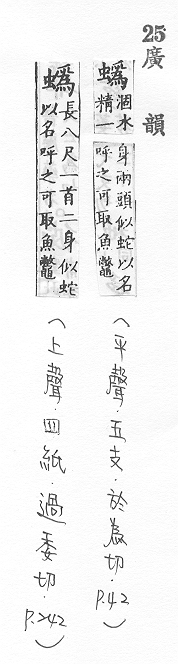 25 廣韻
蟡 涸水
精一
身兩頭似蛇以名
呼之可取魚鼈
(平聲．五支．於為切．P.42)
蟡 長八尺一首二身似蛇
以名呼之可取魚鼈
(上聲．四紙．過委切．P.242)